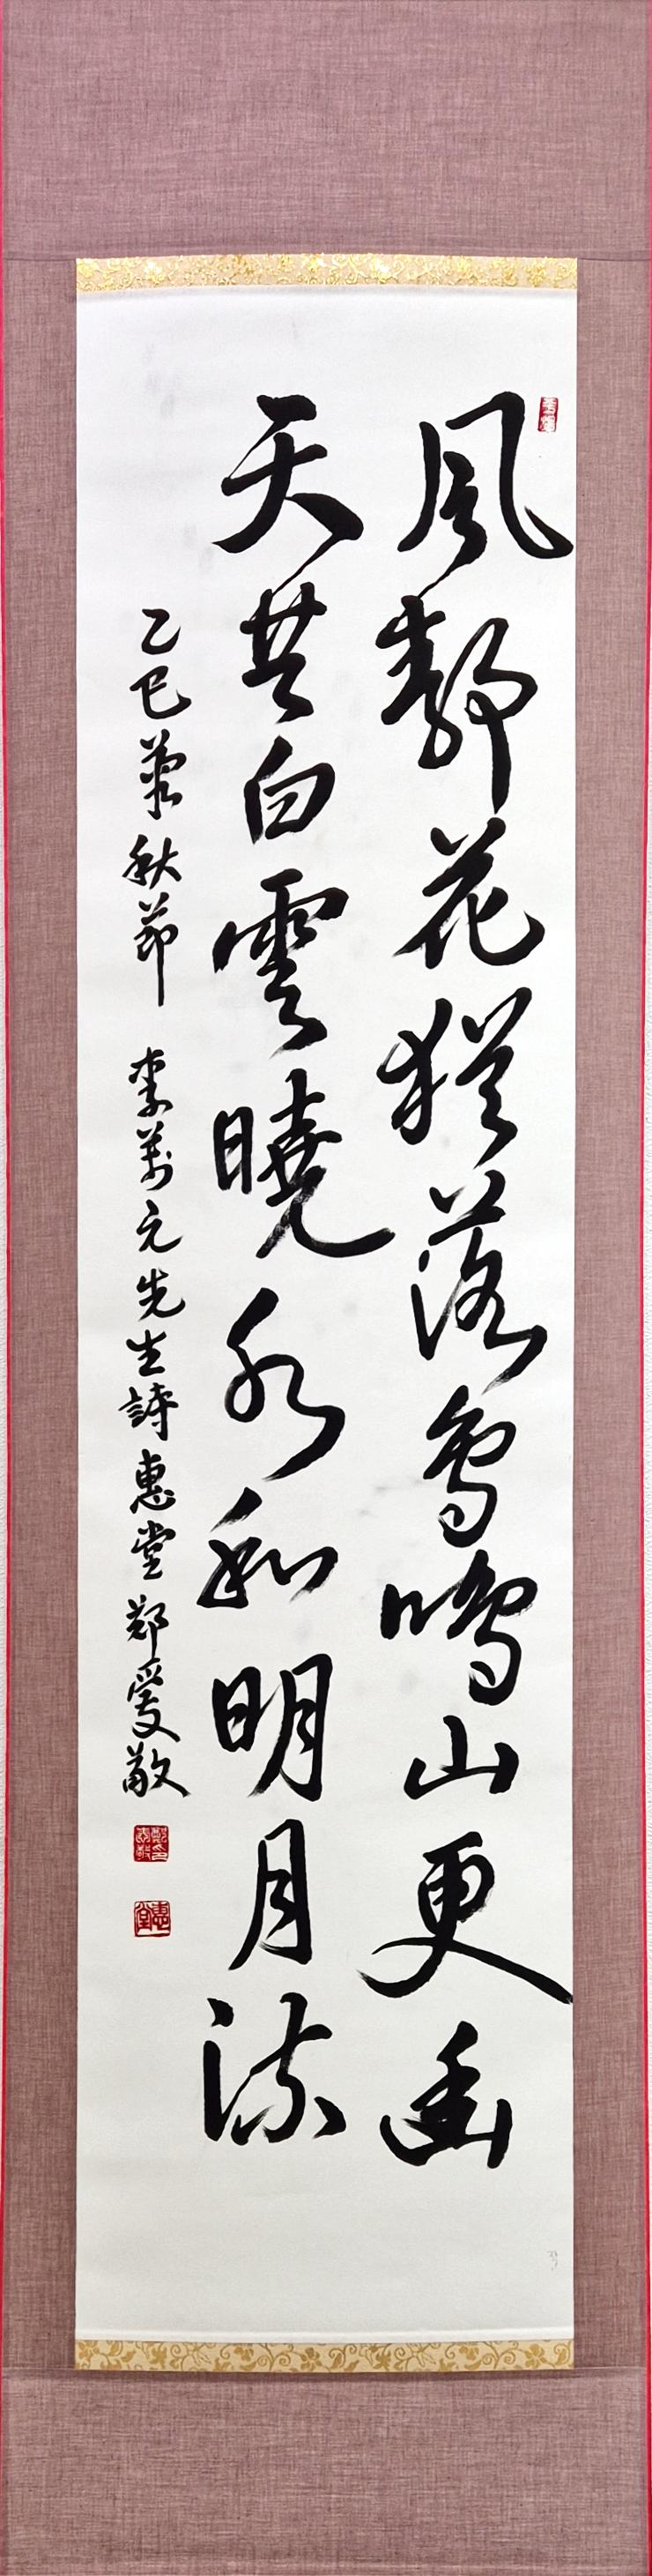 風靜花猶落鳥鳴山更幽
天共白雲曉水和明月流
乙巳肇秋節 李萬元先生詩 惠堂 鄭愛敬
惠堂